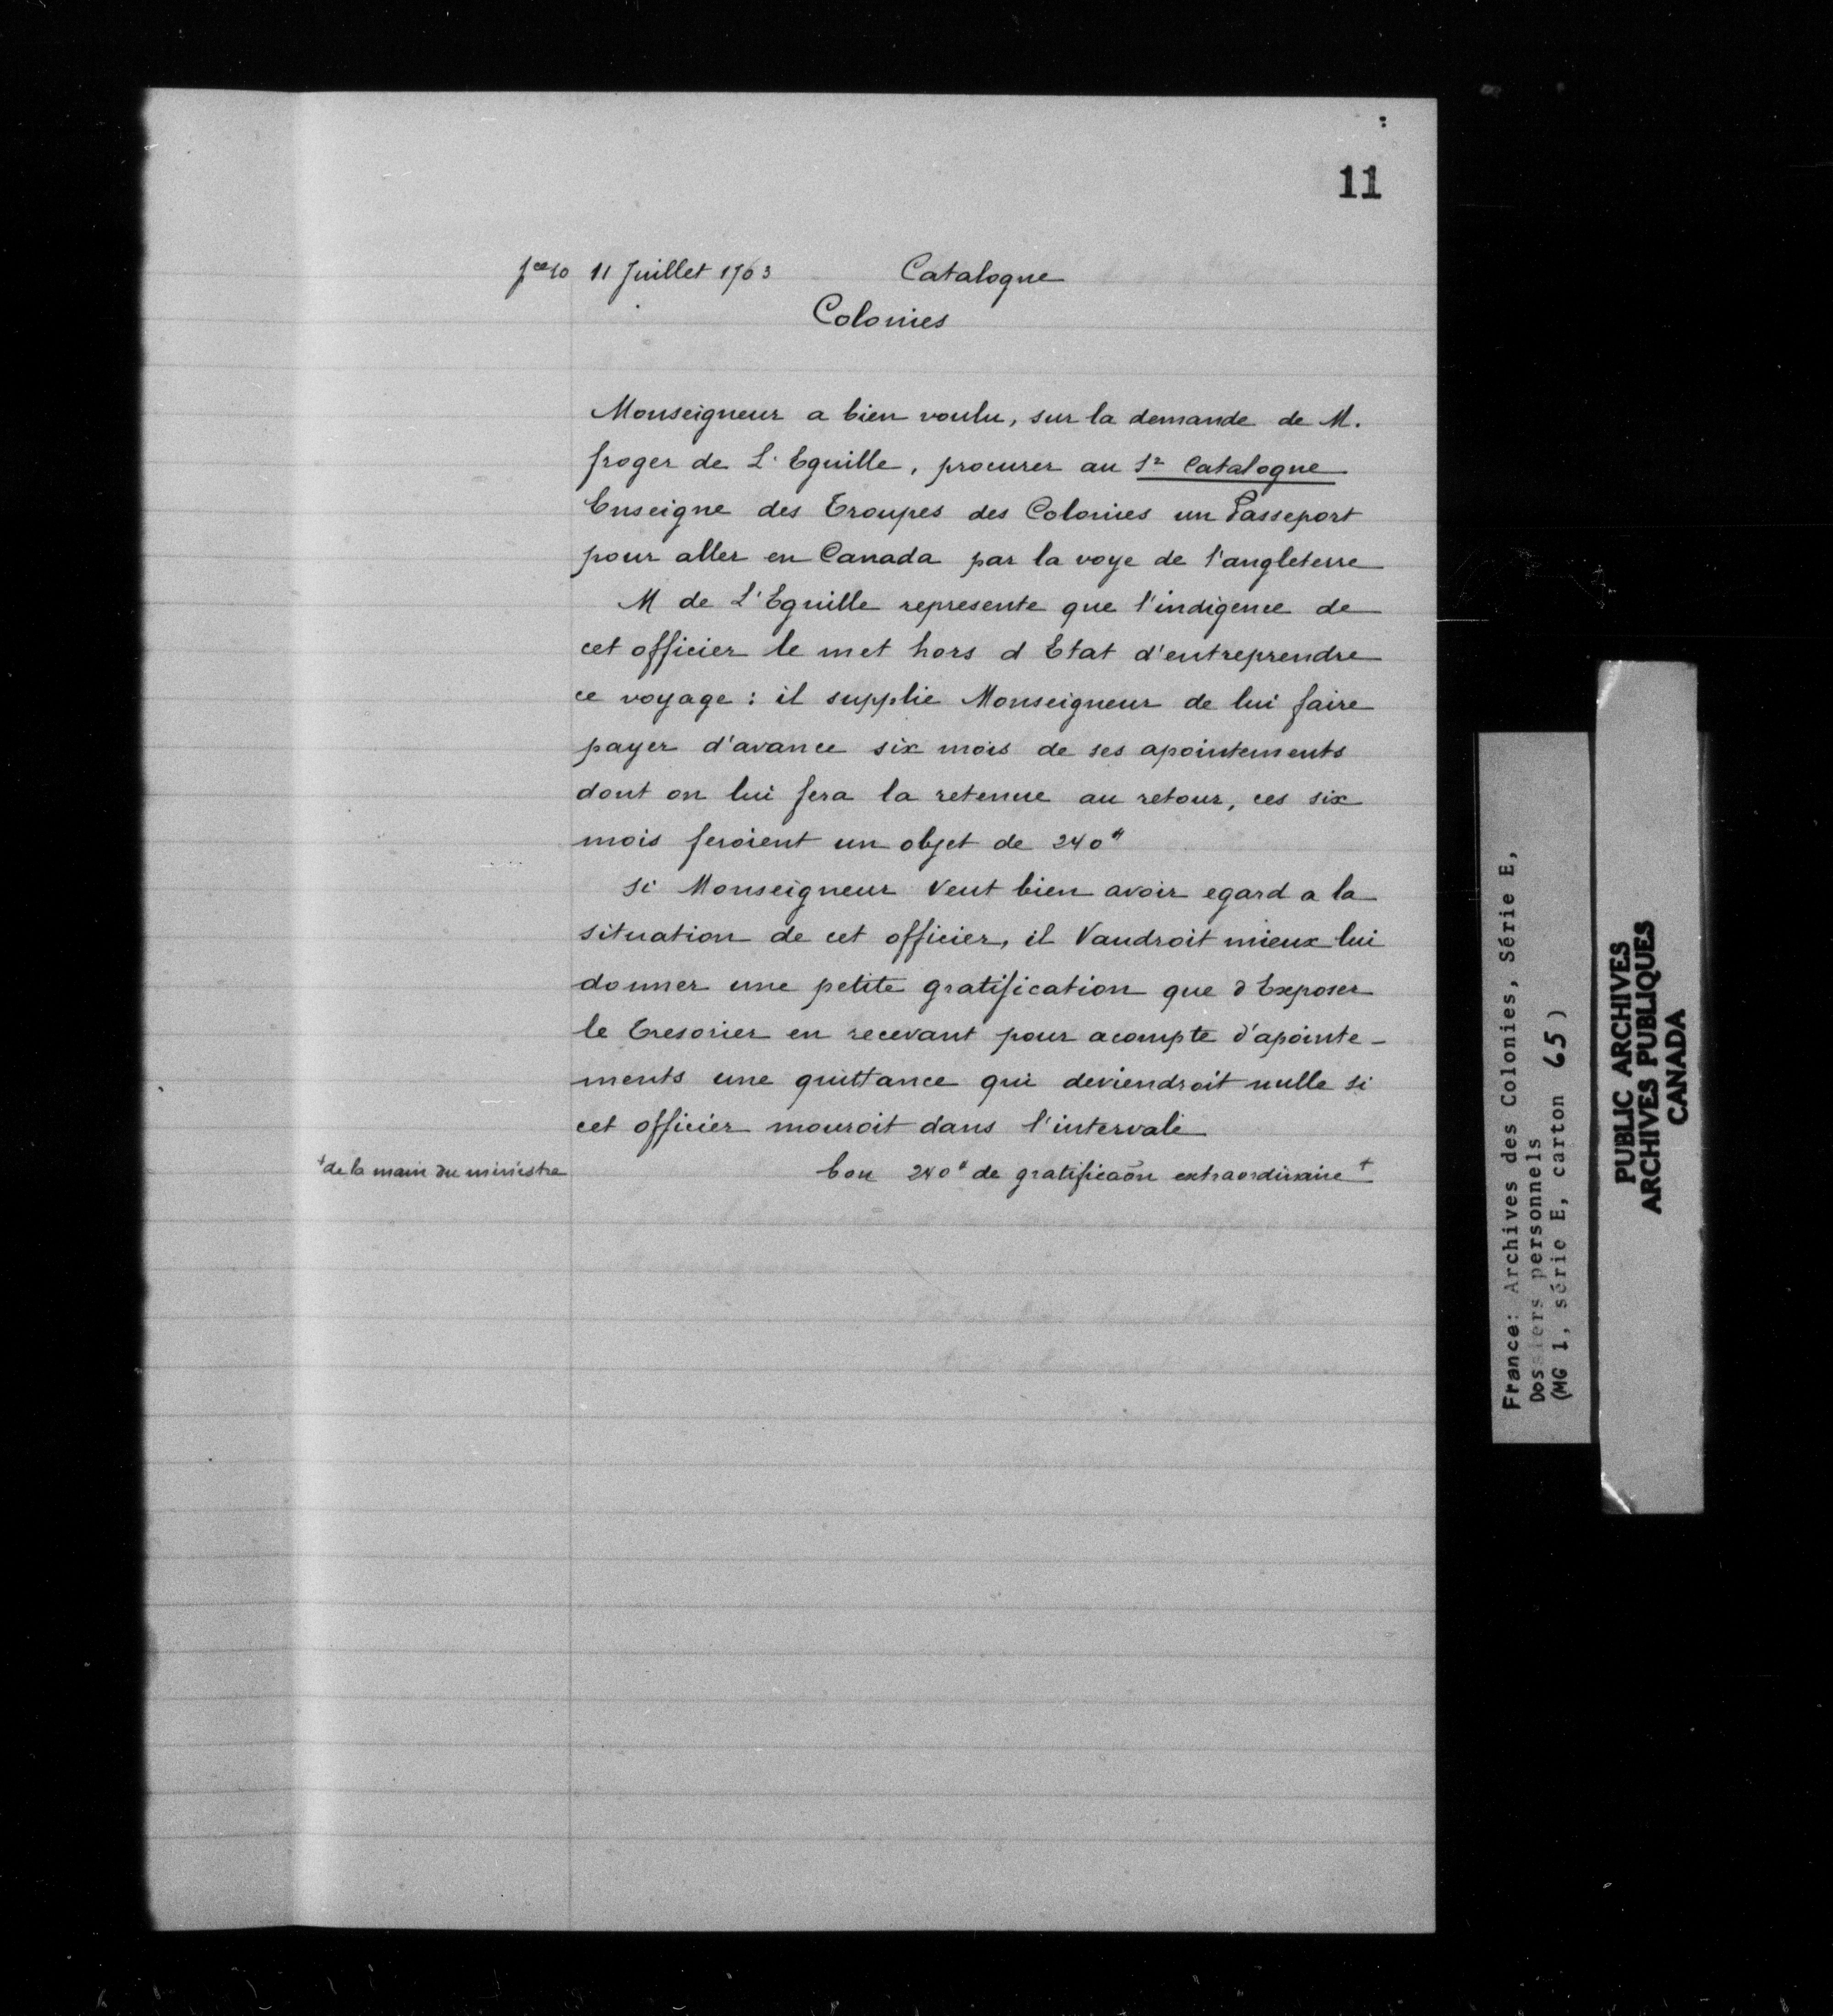 11
pce 10 11 Juillet 1763 Catalogne
Colonies
Monseigneur a bien voulu, sur la demande de M.
froger de L'Eguille, procurer au Sr Catalogne
Enseigne des Troupes des Colonies un Passeport
pour aller en Canada par la voye de l'angleterre
M de L'Eguille represente que l'indigence de
cet officier le met hors d Etat d'entreprendre
ce voyage : il supplie Monseigneur de lui faire
payer d'avance six mois de ses apointements
dont on lui fera la retenue au retour, ces six
mois feroient un objet de 240#
Si Monseigneur Veut bien avoir egard a la
situation de cet officier, il Vaudroit mieux lui
donner une petite gratification que d Exposer
le Tresorier en recevant pour acompte d'apointe-
ments une quittance qui deviendroit nulle si
cet officier mouroit dans l'intervale
+ de la main du ministre
bon 240# de gratificaõn extraordinaire +
France: Archives des Colonies, Série E,
Dossiers personnels
(MG 1, série E, carton 65)
PUBLIC ARCHIVES
ARCHIVES PUBLIQUES
CANADA